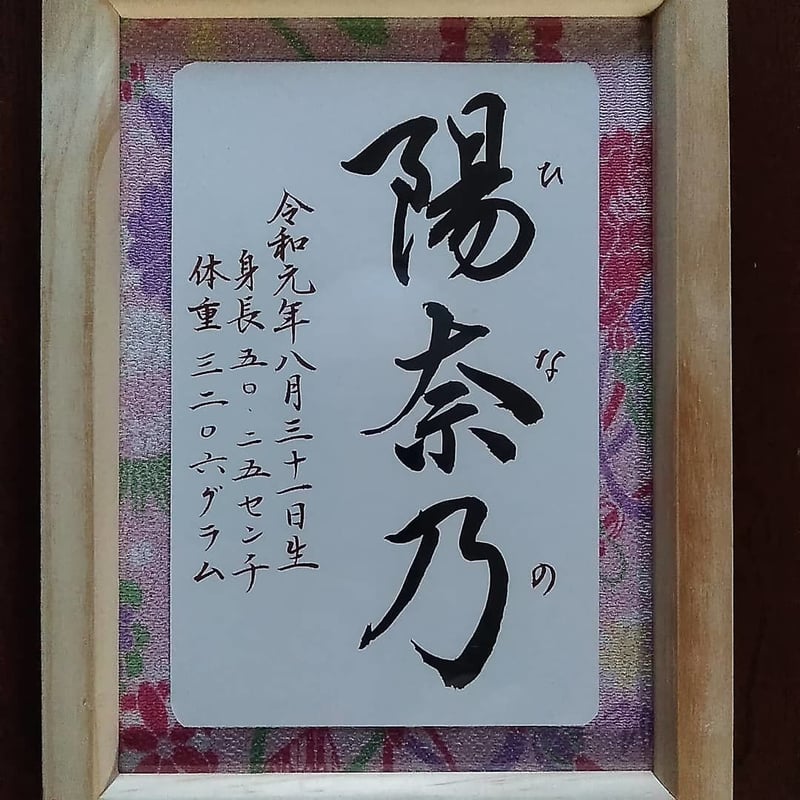 陽奈乃
ひなの
令和元年八月三十一日生
身長五〇.二五センチ
体重三二〇六グラム